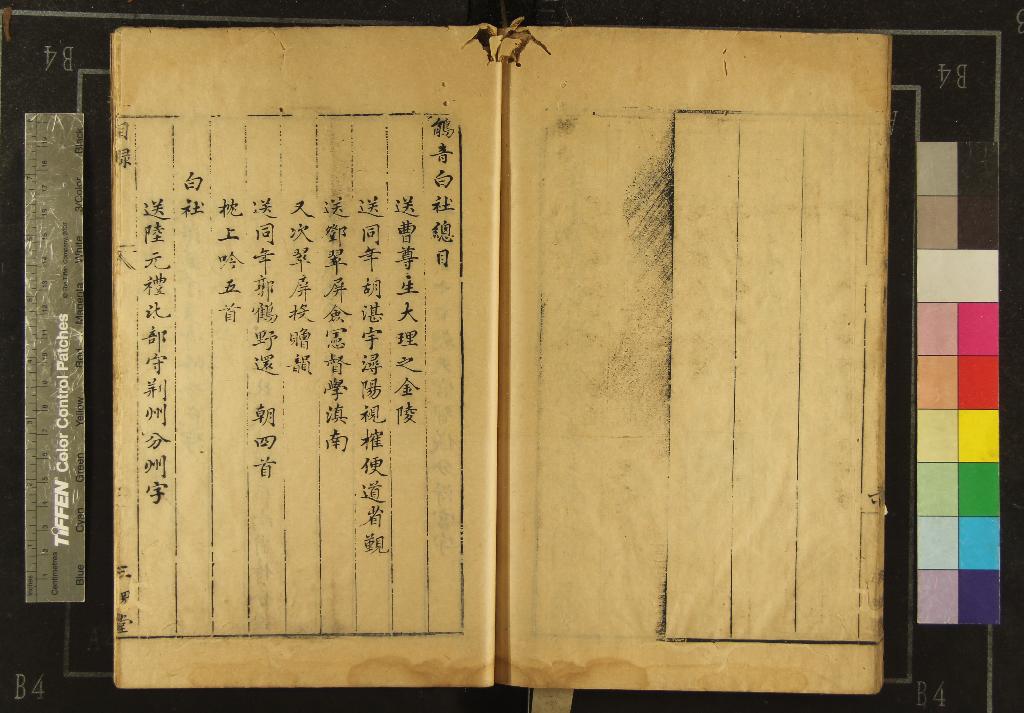 鵃音白社總目
送曹尊生大理之金陵
送同年胡湛宇潯陽視榷便道省覲
送鄧翠屏僉憲督學滇南
又次翠屏投贈韻
送同年郭鶴野還 朝四首
枕上吟五首
白社
送陸元禮比部守荆州分州字
目錄
一
B4
B4
B4
B4
TIFFEN Color Control Patches
© The Tiffen Company, 2007
Inches
Centimetres
Blue
Cyan
Green
Yellow
Red
Magenta
White
3/Color
Black